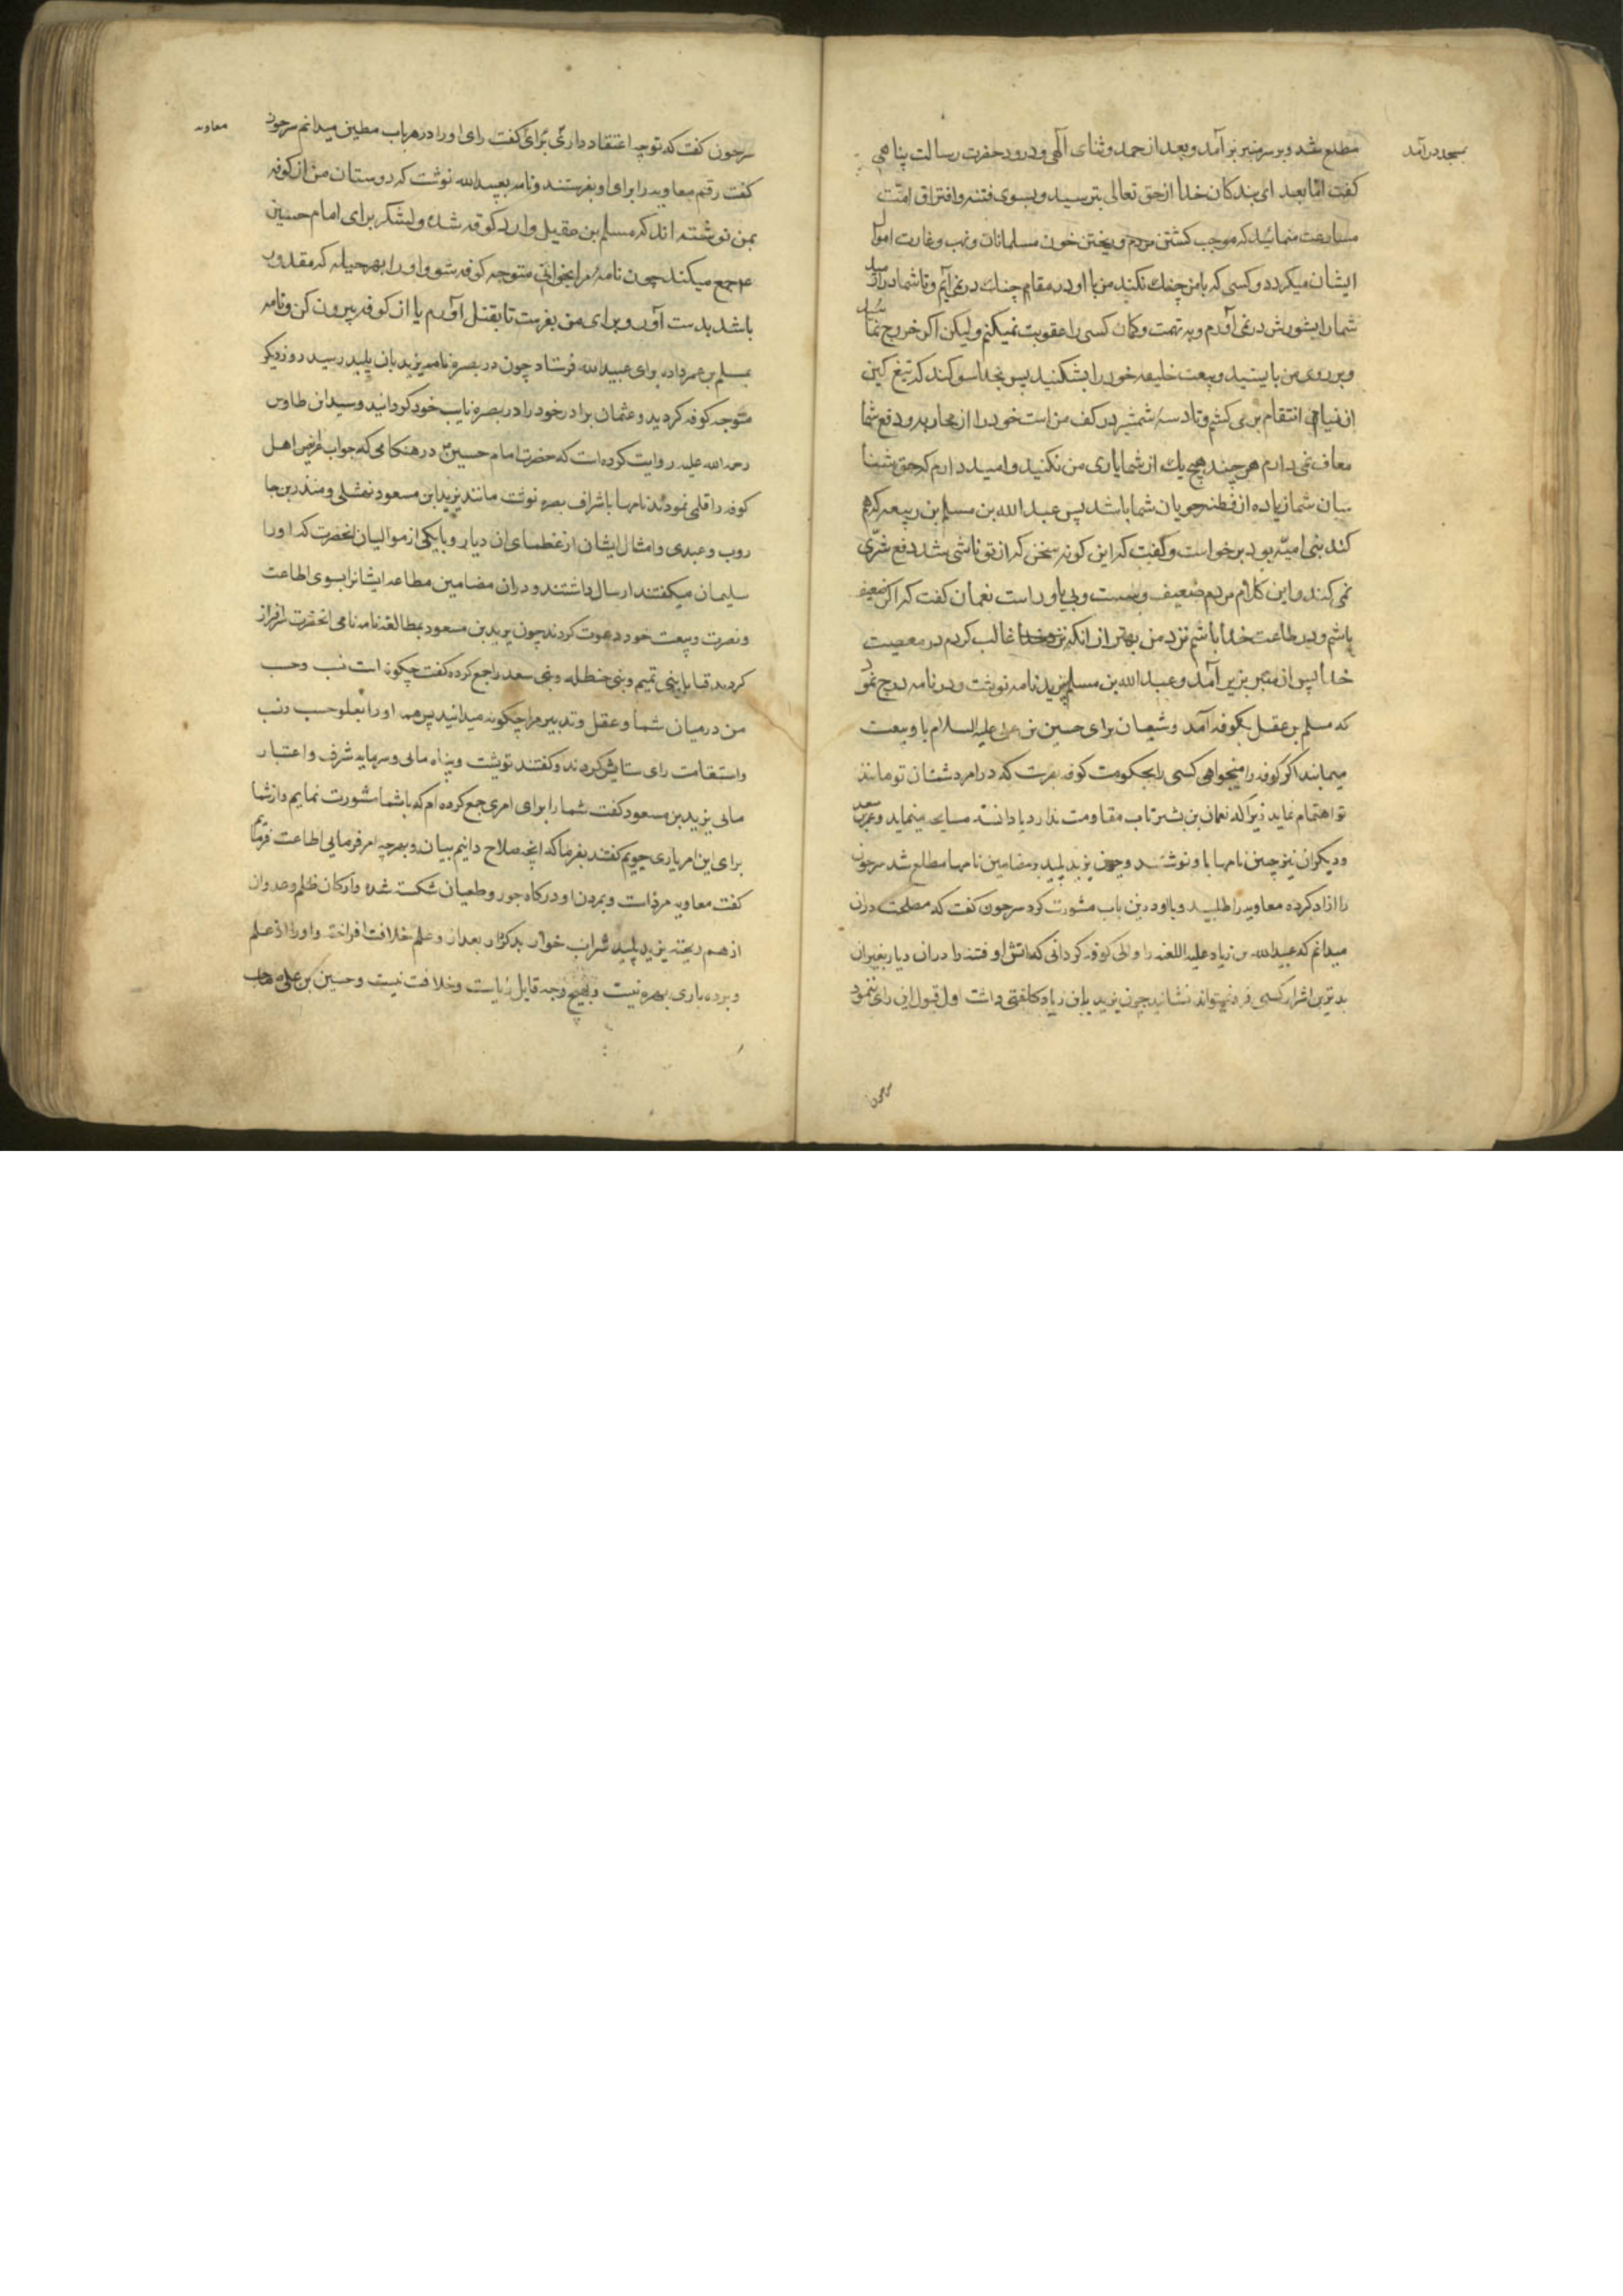 بمسجد درآمد
مطلع شد و بر سر منبر برآمد و بعد از حمد و ثنای الهی و درود حضرت رسالت پناهی
کفت اما بعد ای بندکان خدا از حق تعالی بترسید و بسوی فتنه و افتراق امّت
مسارعت منمائید که موجب کشتن مردم و ریختن خون مسلمانان و نهب و غارت اموال
ایشان میکردد و کسی که با من جنك نکند من با او در مقام جنك در نمی آیم و تا شما در
شما را بشورش در نمی آورم و به تهمت و کمان کسی را عقوبت نمیکنم و لیکن اکر خروج نما
و بر روی من بایستید و بیعت خلیفه خود را بشکنید پس بخدا سوکند که تیغ کین
از نیام انتقام بر می کشم و تا دسته شمشیر در کف من است خود را از محاربه و دفع شما
معاف نمی دارم هر چند هیچ یك از شما یاری من نکنید و امید دارم که حق شناسا
میان شما زیاده از فطنه جویان شما باشد پس عبد الله بن مسلم بن ربیعه که هم
کند بنی امیّه بود برخواست و کفت که این کونه سخن که از تو ناشی شد دفع شرّی
نمی کند و این کلام مردم ضعیف و سست و بی یاور است نعمان کفت که اکر ضعیف
باشم و در طاعت خدا باشم نزد من بهتر از انکه غالب کردم در معصیت
خدا پس از منبر بزیر آمد و عبد الله بن مسلم بیزید نامه نوشت و در نامه درج نمود
که مسلم بن عقیل بکوفه آمد و شیعیان برای حسین بن علی علیه السلام با او بیعت
مینمایند اکر کوفه را میخواهی کسی را بحکومت کوفه بفرست که در امر دشمنان تو مانند
تو اهتمام نماید زیرا که نعمان بن بشیر تاب مقاومت ندارد یا دانسته مسایحه مینماید و عمر بن سعد
و دیکران نیز چنین نامها باو نوشتند و چون یزید پلید بر مضامین نامها مطلع شد سرجون
را ازاد کرده معاویه را طلبید و با او درین باب مشورت کرد سرجون کفت که مصلحت دران
میدانم که عبید الله بن زیاد علیه اللعنه را والی کوفه کردانی که اتش او فتنه را دران دیار بغیر ان
بدترین اشرار کسی فرو نمیتواند نشانید چون یزید با بن زیاد کلفتی داشت اول قبول این رای ننمود
سرجون
معاویه
سرجون کفت که تو چه اعتقاد داری برای کفت رای او را در هر باب مطین میدانم سرجون
کفت رقم معاویه را برای او بفرستند و نامه بعبید الله نوشت که دوستان من از کوفه
بمن نوشته اند که مسلم بن عقیل وارد کوفه شده و لشکر برای امام حسین
ع جمع میکند چون نامه مرا بخوانی متوجه کوفه شو و او را بهر حیله که مقدور
باشد بدست آور و برای من بفرست تا بقتل آورم یا از کوفه بیرون کن و نامه
بمسلم بن عمر داده برای عبید الله فرستاد چون در بصره نامه یزید بان پلید رسید روز دیکر
متوجه کوفه کردید و عثمان برادر خود را در بصره نایب خود کردانید و سید ابن طاوس
رحمه الله علیه روایت کرده است که حضرت امام حسین ع در هنکامی که جواب عرایض اهل
کوفه را قلمی نمودند نامها باشراف بصره نوشت مانند یزید ابن مسعود نهشلی و منذر بن جا
رود عبدی و امثال ایشان از عظمای ان دیار و با یکی از موالیان انحضرت که او را
سلیمان میکفتند ارسال داشتند و دران مضامین مطاعه ایشانرا بسوی اطاعت
و نصرت و بیعت خود دعوت کردند چون یزید بن مسعود بمطالعه نامه نامی انحضرت سرافراز
کردید قبایل بنی تمیم و بنی حنظله و بنی سعد را جمع کرده کفت چکونه است نسب و حسب
من در میان شما و عقل و تدبیر مرا چکونه میدانید پس همه او را بعلو حسب و نسب
و استقامت رای ستایش کردند و کفتند تو پشت و پناه مائی و سرمایه شرف و اعتبار
مائی یزید بن مسعود کفت شما را برای امری جمع کرده ام که با شما مشورت نمایم و از شما
برای این امر یاری جویم کفتند بفرما که انچه صلاح دانیم بیان و بهر چه امر فرمایی اطاعت
کفت معاویه مرده است و بمردن او درکاه جور و طغیان شکسته شده و ارکان ظلم و عدوان
از هم ریخته یزید پلید شراب خوار بد کردار بعد از و علم خلافت افراخته و او را از علم
و بردباری بهره نیست و بهیچ وجه قابل ریاست و خلافت نیست و حسین بن علی صاحب